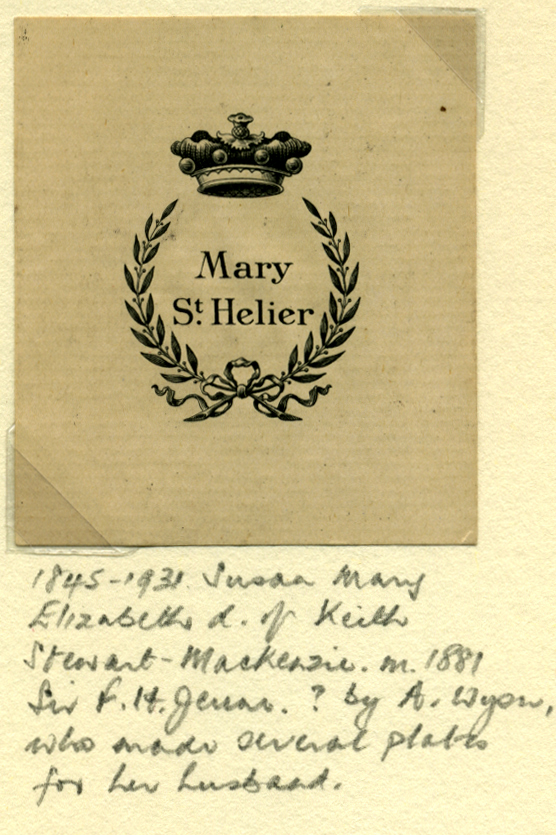 Mary
St. Helier
1845-1931 Susan Mary
Elizabeth d. of Keith
Stewart-Mackenzie. m. 1881
Sir F. H. Jeune. ? by A. Wyon,
who made several plates
for her husband.